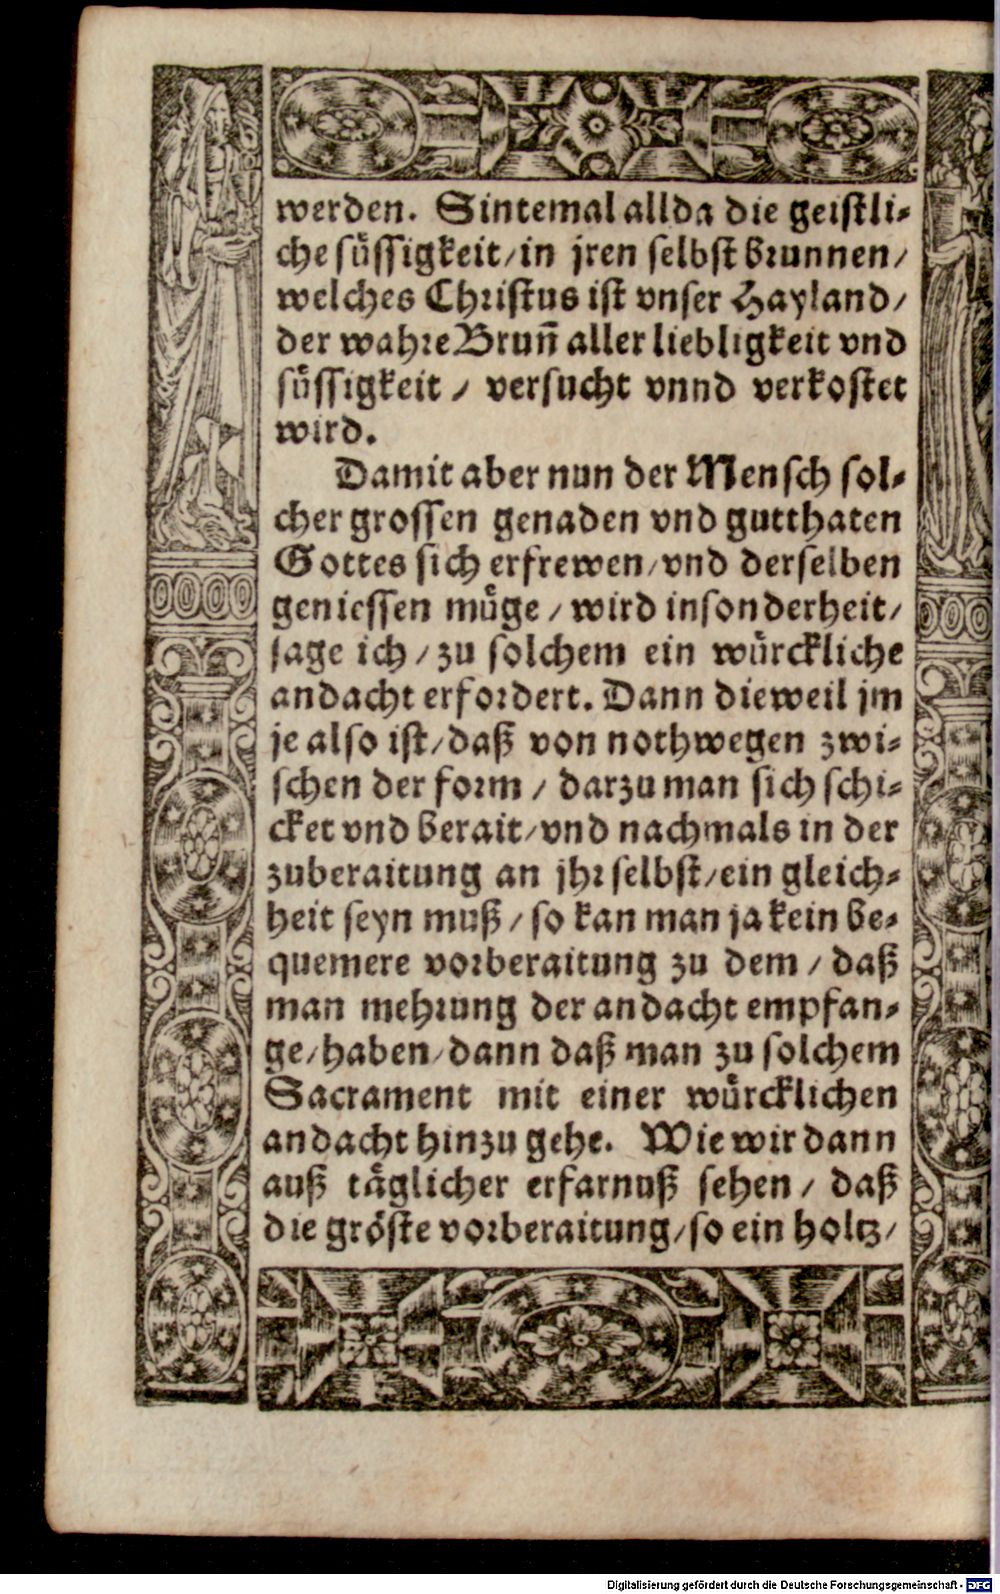 werden. Sintemal allda die geistli-
che süssigkeit/in jren selbst brunnen/
welches Christus ist vnser Hayland/
der wahre Brun̄ aller liebligkeit vnd
süssigkeit / versucht vnnd verkostet
wird.
Damit aber nun der Mensch sol-
cher grossen genaden vnd gutthaten
Gottes sich erfrewen/vnd derselben
geniessen müge / wird insonderheit/
sage ich / zu solchem ein würckliche
andacht erfordert. Dann dieweil jm
je also ist/daß von nothwegen zwi-
schen der form / darzu man sich schi-
cket vnd berait/vnd nachmals in der
zuberaitung an jhr selbst/ein gleich-
heit seyn muß / so kan man ja kein be-
quemere vorberaitung zu dem / daß
man mehrung der andacht empfan-
ge/haben/dann daß man zu solchem
Sacrament mit einer würcklichen
andacht hinzu gehe. Wie wir dann
auß täglicher erfarnuß sehen / daß
die gröste vorberaitung/so ein holtz/
Digitalisierung gefördert durch die Deutsche Forschungsgemeinschaft - DFG